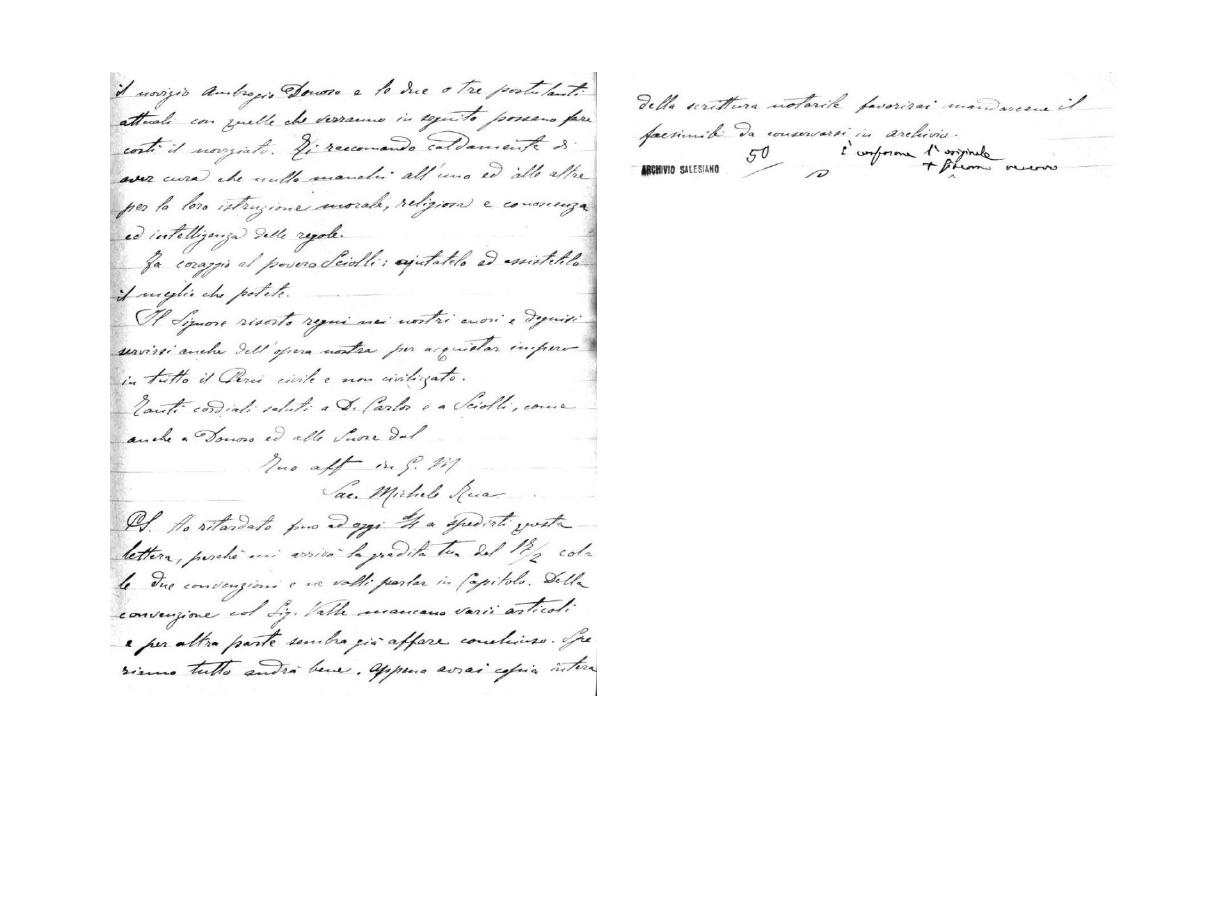 il novizio Ambrogio Donoso e le due o tre postulanti
attuali con quelle che verranno in seguito possano fare
costì il noviziato. Ti raccomando caldamente di
aver cura che nulla manchi all'uno ed alle altre
per la loro istruzione morale, religiosa e conoscenza
ed intelligenza delle regole.
Fa coraggio al povero Sciolli: ajutatelo ed assistetelo
il meglio che potete.
Il Signore risorto regni nei nostri cuori e degnisi
servirsi anche dell'opera nostra per acquistar impero
in tutto il Perù civile e non civilizzato.
Tanti cordiali saluti a D. Carlos e a Sciolli, come
anche a Donoso ed alle Suore dal
Tuo aff in G. M
Sac. Michele Rua
PS. Ho ritardato fino ad oggi a spedirti questa
lettera, perchè mi arrivò la gradita tua del 17/2 col-
le due convenzioni e ne volli parlar in Capitolo. Della
convenzione col Sig. Valle mancano varii articoli
e per altra parte sembra già affare conchiuso. Spe
riamo tutto andrà bene. Appena avrai copia intera
della scrittura notarile favorirai mandarcene il
facsimile da conservarsi in archivio.
È conforme l'originale
ARCHIVIO SALESIANO 50
vescovo